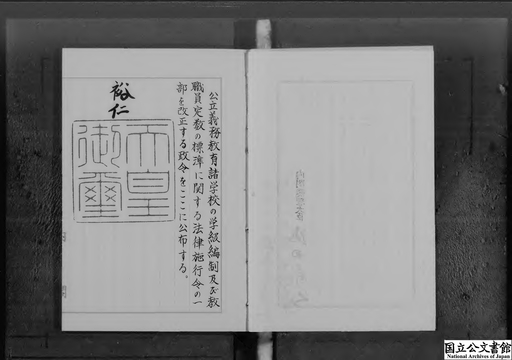 公立義務教育諸学校の学級編制及び教
職員定数の標準に関する法律施行令の一
部を改正する政令をここに公布する。
裕仁
天皇
御璽
国立公文書館
National Archives of Japan